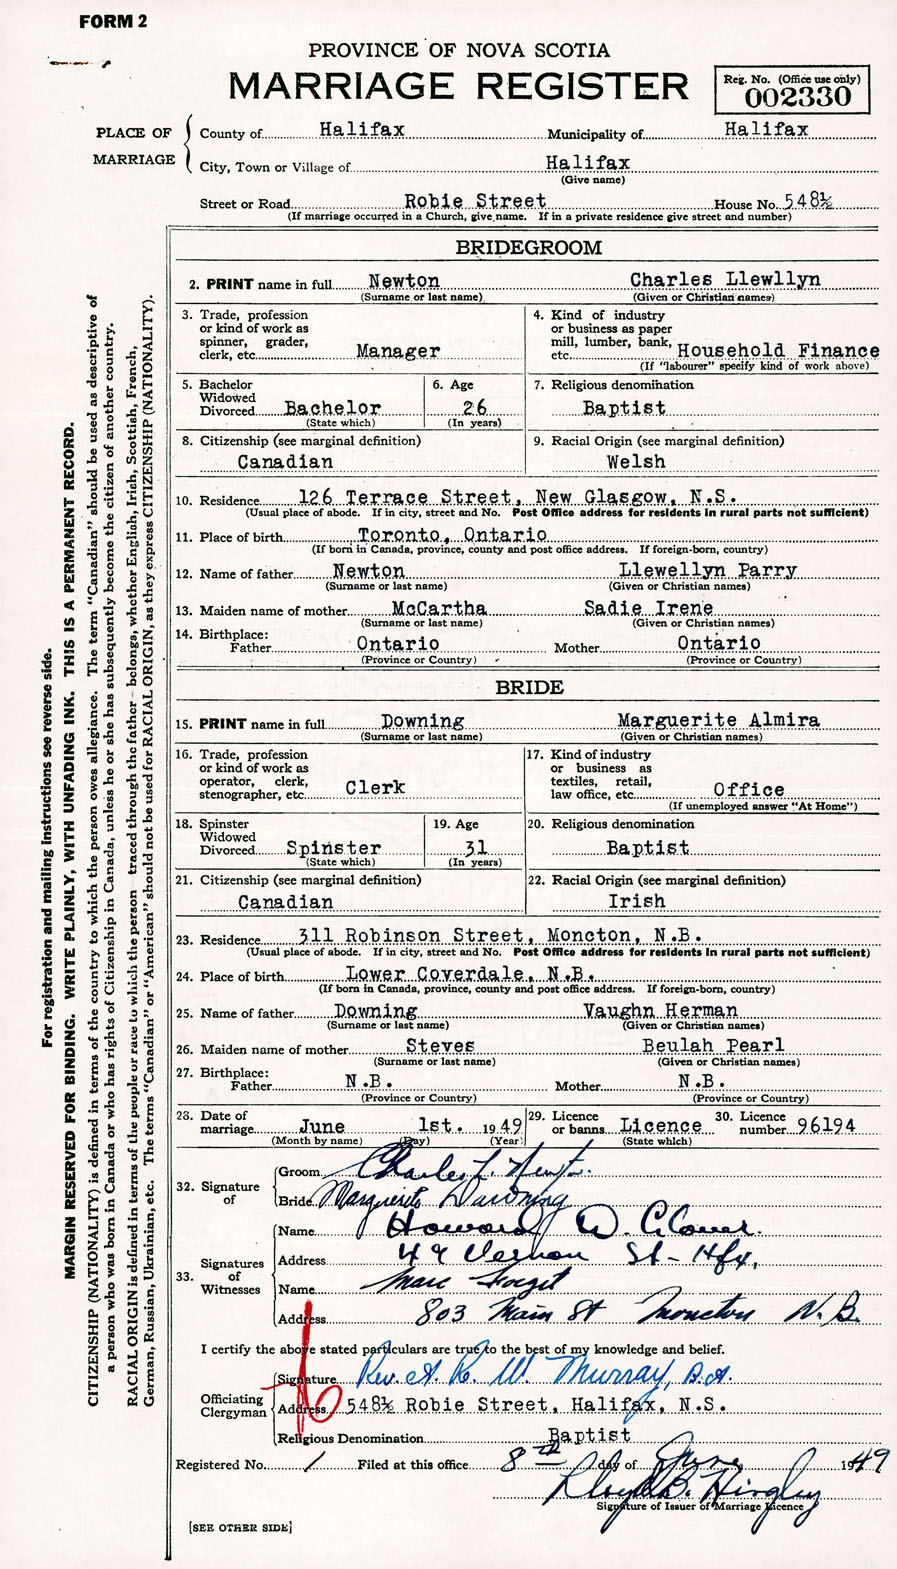 FORM 2
PROVINCE OF NOVA SCOTIA
MARRIAGE REGISTER
Reg. No. (Office use only)
002330
PLACE OF MARRIAGE
County of Halifax Municipality of Halifax
City, Town or Village of Halifax
(Give name)
Street or Road Robie Street House No. 548½
(If marriage occurred in a Church, give name. If in a private residence give street and number)
BRIDEGROOM
2. PRINT name in full Newton Charles Llewllyn
(Surname or last name) (Given or Christian names)
3. Trade, profession or kind of work as spinner, grader, clerk, etc. Manager
4. Kind of industry or business as paper mill, lumber, bank, etc. Household Finance
(If "labourer" specify kind of work above)
5. Bachelor Widowed Divorced Bachelor
(State which)
6. Age 26
(In years)
7. Religious denomination
Baptist
8. Citizenship (see marginal definition)
Canadian
9. Racial Origin (see marginal definition)
Welsh
10. Residence 126 Terrace Street, New Glasgow, N.S.
(Usual place of abode. If in city, street and No. Post Office address for residents in rural parts not sufficient)
11. Place of birth Toronto, Ontario
(If born in Canada, province, county and post office address. If foreign-born, country)
12. Name of father Newton Llewellyn Parry
(Surname or last name) (Given or Christian names)
13. Maiden name of mother McCartha Sadie Irene
(Surname or last name) (Given or Christian names)
14. Birthplace:
Father Ontario Mother Ontario
(Province or Country) (Province or Country)
BRIDE
15. PRINT name in full Downing Marguerite Almira
(Surname or last name) (Given or Christian names)
16. Trade, profession or kind of work as operator, clerk, stenographer, etc. Clerk
17. Kind of industry or business as textiles, retail, law office, etc. Office
(If unemployed answer "At Home")
18. Spinster Widowed Divorced Spinster
(State which)
19. Age 31
(In years)
20. Religious denomination
Baptist
21. Citizenship (see marginal definition)
Canadian
22. Racial Origin (see marginal definition)
Irish
23. Residence 311 Robinson Street, Moncton, N.B.
(Usual place of abode. If in city, street and No. Post Office address for residents in rural parts not sufficient)
24. Place of birth Lower Coverdale, N.B.
(If born in Canada, province, county and post office address. If foreign-born, country)
25. Name of father Downing Vaughn Herman
(Surname or last name) (Given or Christian names)
26. Maiden name of mother Steves Beulah Pearl
(Surname or last name) (Given or Christian names)
27. Birthplace:
Father N.B. Mother N.B.
(Province or Country) (Province or Country)
28. Date of marriage June 1st. 1949
(Month by name) (Day) (Year)
29. Licence or banns Licence
(State which)
30. Licence number 96194
32. Signature of
Groom Charles L. Newton.
Bride Marguerite Downing
33. Signatures of Witnesses
Name Howard D. Glover.
Address 49 Vernon St - Hfx,
Name Marc Forget
Address 803 Main St Moncton N.B.
I certify the above stated particulars are true to the best of my knowledge and belief.
Officiating Clergyman
Signature Rev. A. R. W. Murray, B.A.
Address 548½ Robie Street, Halifax, N.S.
Religious Denomination Baptist
Registered No. 1 Filed at this office 8th day of June 1949
Lloyd B. Hingley
Signature of Issuer of Marriage Licence
[SEE OTHER SIDE]
For registration and mailing instructions see reverse side.
MARGIN RESERVED FOR BINDING. WRITE PLAINLY, WITH UNFADING INK. THIS IS A PERMANENT RECORD.
CITIZENSHIP (NATIONALITY) is defined in terms of the country to which the person owes allegiance. The term "Canadian" should be used as descriptive of
a person who was born in Canada or who has rights of Citizenship in Canada, unless he or she has subsequently become the citizen of another country.
RACIAL ORIGIN is defined in terms of the people or race to which the person traced through the father belongs, whether English, Irish, Scottish, French,
German, Russian, Ukrainian, etc. The terms "Canadian" or "American" should not be used for RACIAL ORIGIN, as they express CITIZENSHIP (NATIONALITY).